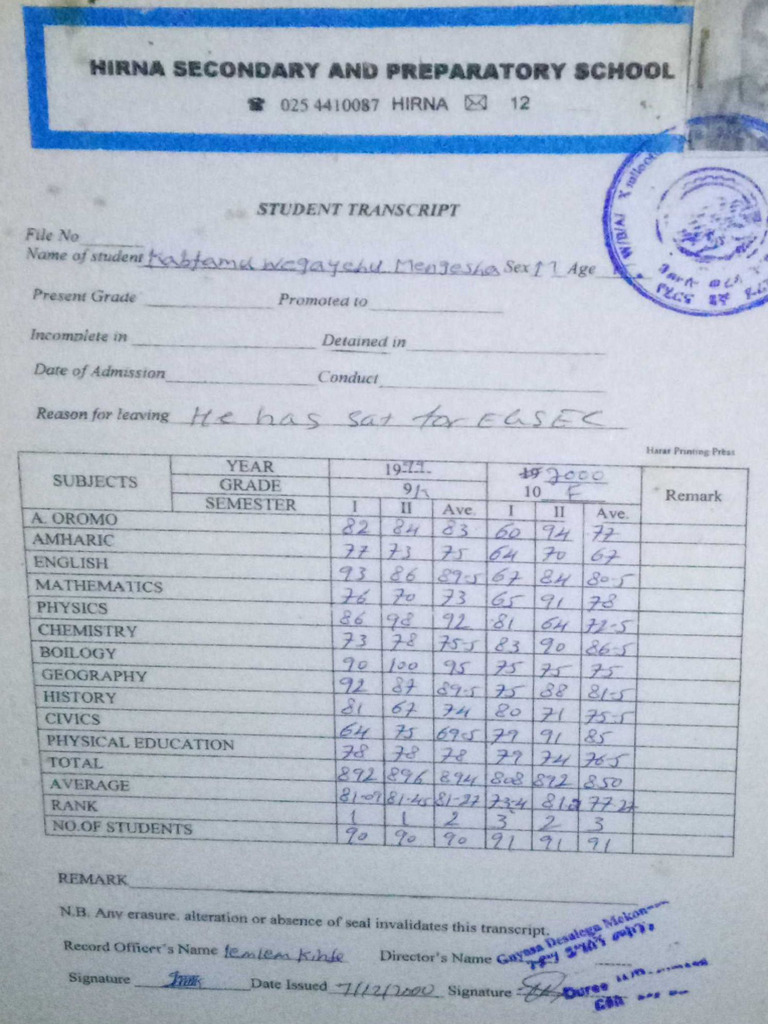 HIRNA SECONDARY AND PREPARATORY SCHOOL
☎ 025 4410087 HIRNA ✉ 12
STUDENT TRANSCRIPT
File No
Name of student Habtamu Wegayehu Mengesha Sex M Age
Present Grade Promoted to
Incomplete in Detained in
Date of Admission Conduct
Reason for leaving He has sat for EGSEC
Harar Printing Press
SUBJECTS YEAR 1999 2000 Remark
GRADE 9 10 F
SEMESTER I II Ave. I II Ave.
A. OROMO 82 84 83 60 94 77
AMHARIC 77 73 75 64 70 67
ENGLISH 93 86 89.5 67 84 80.5
MATHEMATICS 76 70 73 65 91 78
PHYSICS 86 98 92 81 64 72.5
CHEMISTRY 73 78 75.5 83 90 86.5
BOILOGY 90 100 95 75 75 75
GEOGRAPHY 92 87 89.5 75 88 81.5
HISTORY 81 67 74 80 71 75.5
CIVICS 64 75 69.5 79 91 85
PHYSICAL EDUCATION 78 78 78 79 74 76.5
TOTAL 892 896 894 808 892 850
AVERAGE 81.09 81.45 81.27 73.4 81 77.27
RANK 1 1 2 3 2 3
NO.OF STUDENTS 90 90 90 91 91 91
REMARK
N.B. Any erasure. alteration or absence of seal invalidates this transcript.
Record Officer's Name Lemlem Kihfe Director's Name Guyasa Desalegn
Signature Date Issued 7/12/2000 Signature